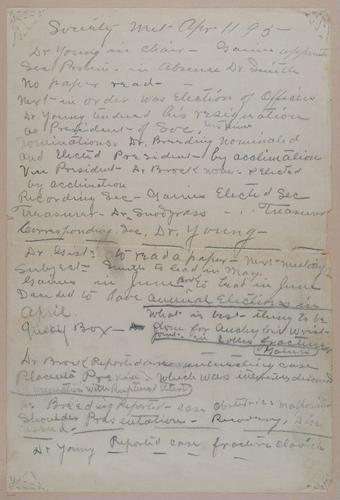 Society Met Apr 11 95 -
Dr Young in chair - Gaines appointed
Sec Protem - in Absence Dr. Smith
No paper read -
Next - in order was Election of Officers
Dr Young tendered his resignation
as President - of Soc,
nominations. Dr. Breeding Nominated
and Elected President - by acclimation
Vice President - Dr Brock nom - & elected
by acclimation
Recording Sec - Gaines Elected Sec
Treasurer - Dr. Snodgrass - Treasurer
Corresponding Sec, Dr. Young -
Dr. to read a paper - Next - meeting
Subject - Smith to lead in May.
Gaines in June to lead in June
Decided to have annual Elections in
April.
What is best - thing to be
Query Box - done for Ankylosed Wrist -
joint - in Colles fracture
Dr Brock Reported an interesting case
Placenta Previa - Which was discussed
in connection with Ruptured Uterus
Dr Breeding Reported - case Obstetrics
Shoulder Presentation - Recovery,
Dr Young Reported case fracture Clavicle